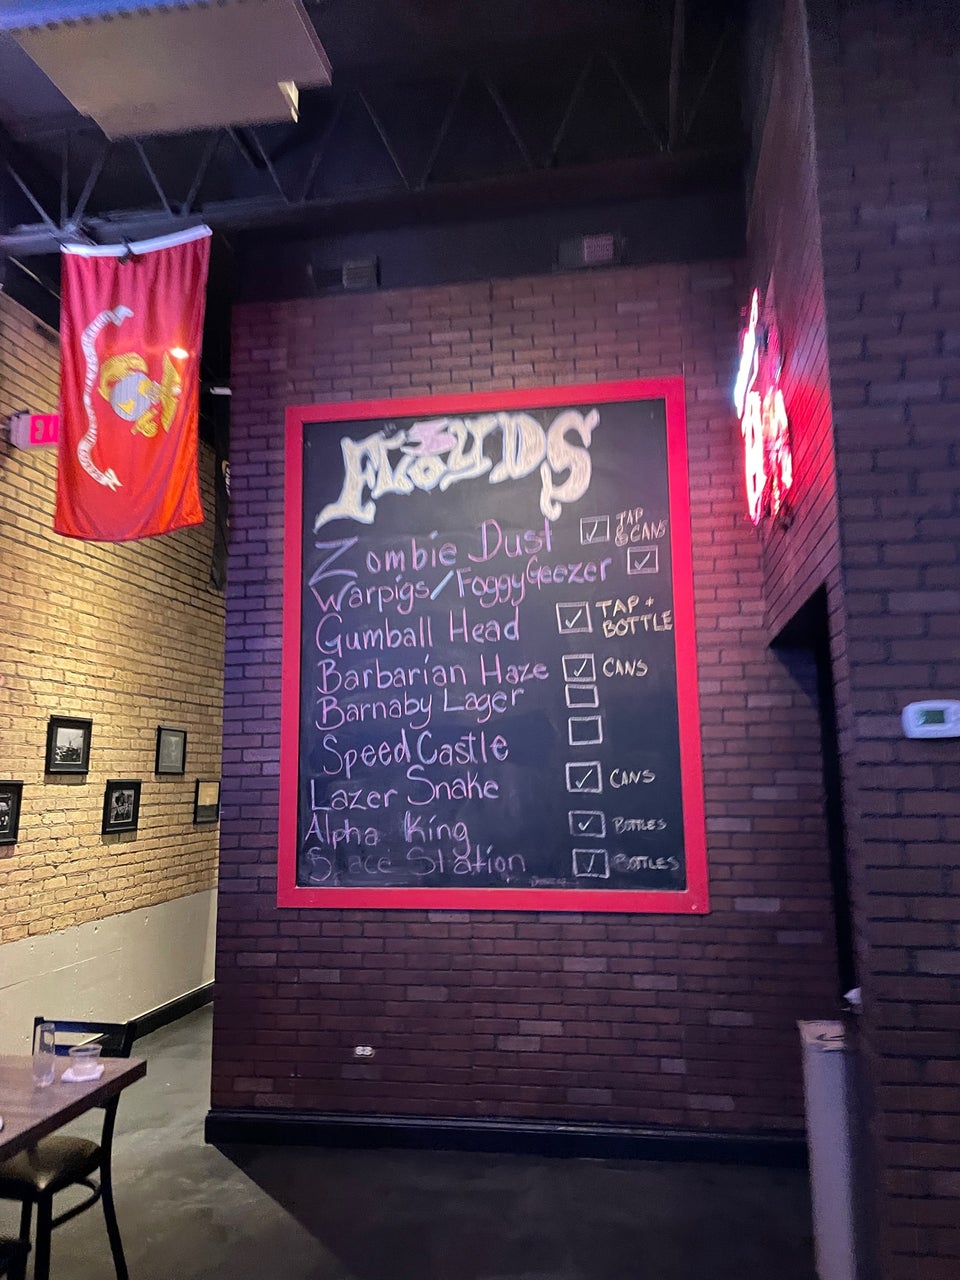 EXI
FLOYDS
Zombie Dust ☑ TAP & CANS
Warpigs/FoggyGeezer ☑
Gumball Head ☑ TAP + BOTTLE
Barbarian Haze ☑ CANS
Barnaby Lager ☐
Speed Castle ☐
Lazer Snake ☑ CANS
Alpha King ☑ BOTTLES
Space Station ☑ BOTTLES